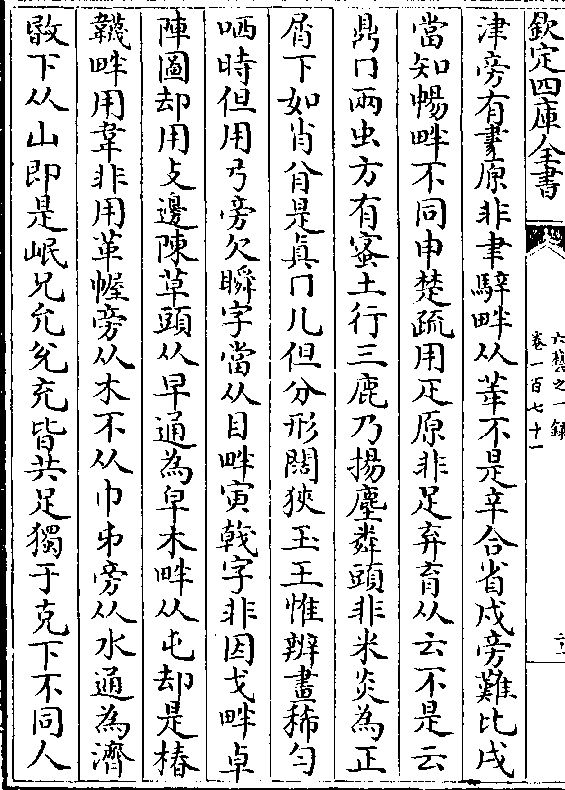 欽定四庫全書
六藝之一錄
卷一百七十一
津旁有𦘔原非聿騂畔从䇂不是辛合省戍旁難比戌
當知暢畔不同申楚疏用疋原非足弃育从𠫓不是云
鼎冂兩虫方有蜜土行三鹿乃揚塵粦頭非米炎為正
脣下如肖肙是真冂几但分形闊狹玉王惟辨畫稀勻
哂時但用弓旁欠瞬字當从目畔寅戟字非因戈畔卓
陣圖却用攴邊陳草頭从早通為皁木畔从屯却是椿
韈畔用韋非用革幄旁从木不从巾𠂔旁从水通為濟
敯下从山即是岷兄允兊充皆共足獨于克下不同人